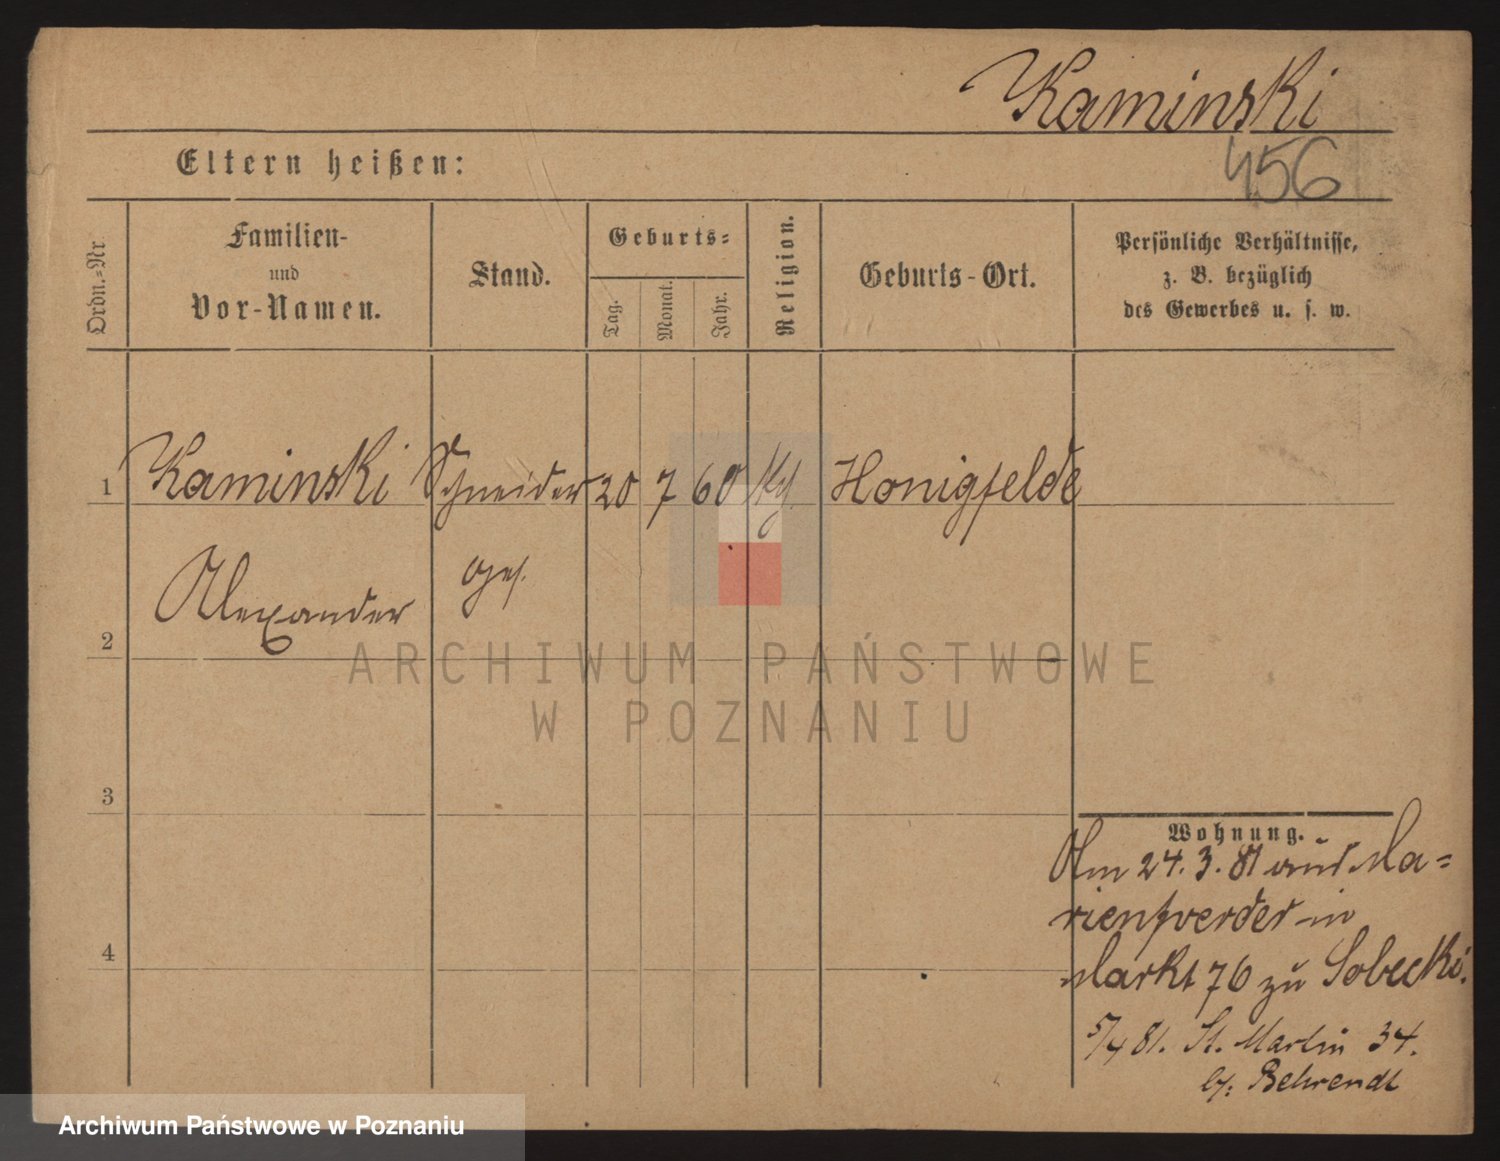 Kaminski
456
Eltern heißen:
Ordn.=Nr
Familien-
und
Vor-Namen.
Stand.
Geburts=
Tag.
Monat.
Jahr.
Religion.
Geburts-Ort.
Persönliche Verhältnisse,
z. B. bezüglich
des Gewerbes u. s. w.
1 Kaminski Schneider 20 7 60 Honigfelde
Alexander ges.
2
ARCHIWUM PAŃSTWOWE
W POZNANIU
3
Wohnung.
Am 24. 3. 81 aus Ma=
rienwerder in
Markt 76 zu Sobecki.
4
5/4 81. St. Martin 34.
b/: Behrendt
Archiwum Państwowe w Poznaniu